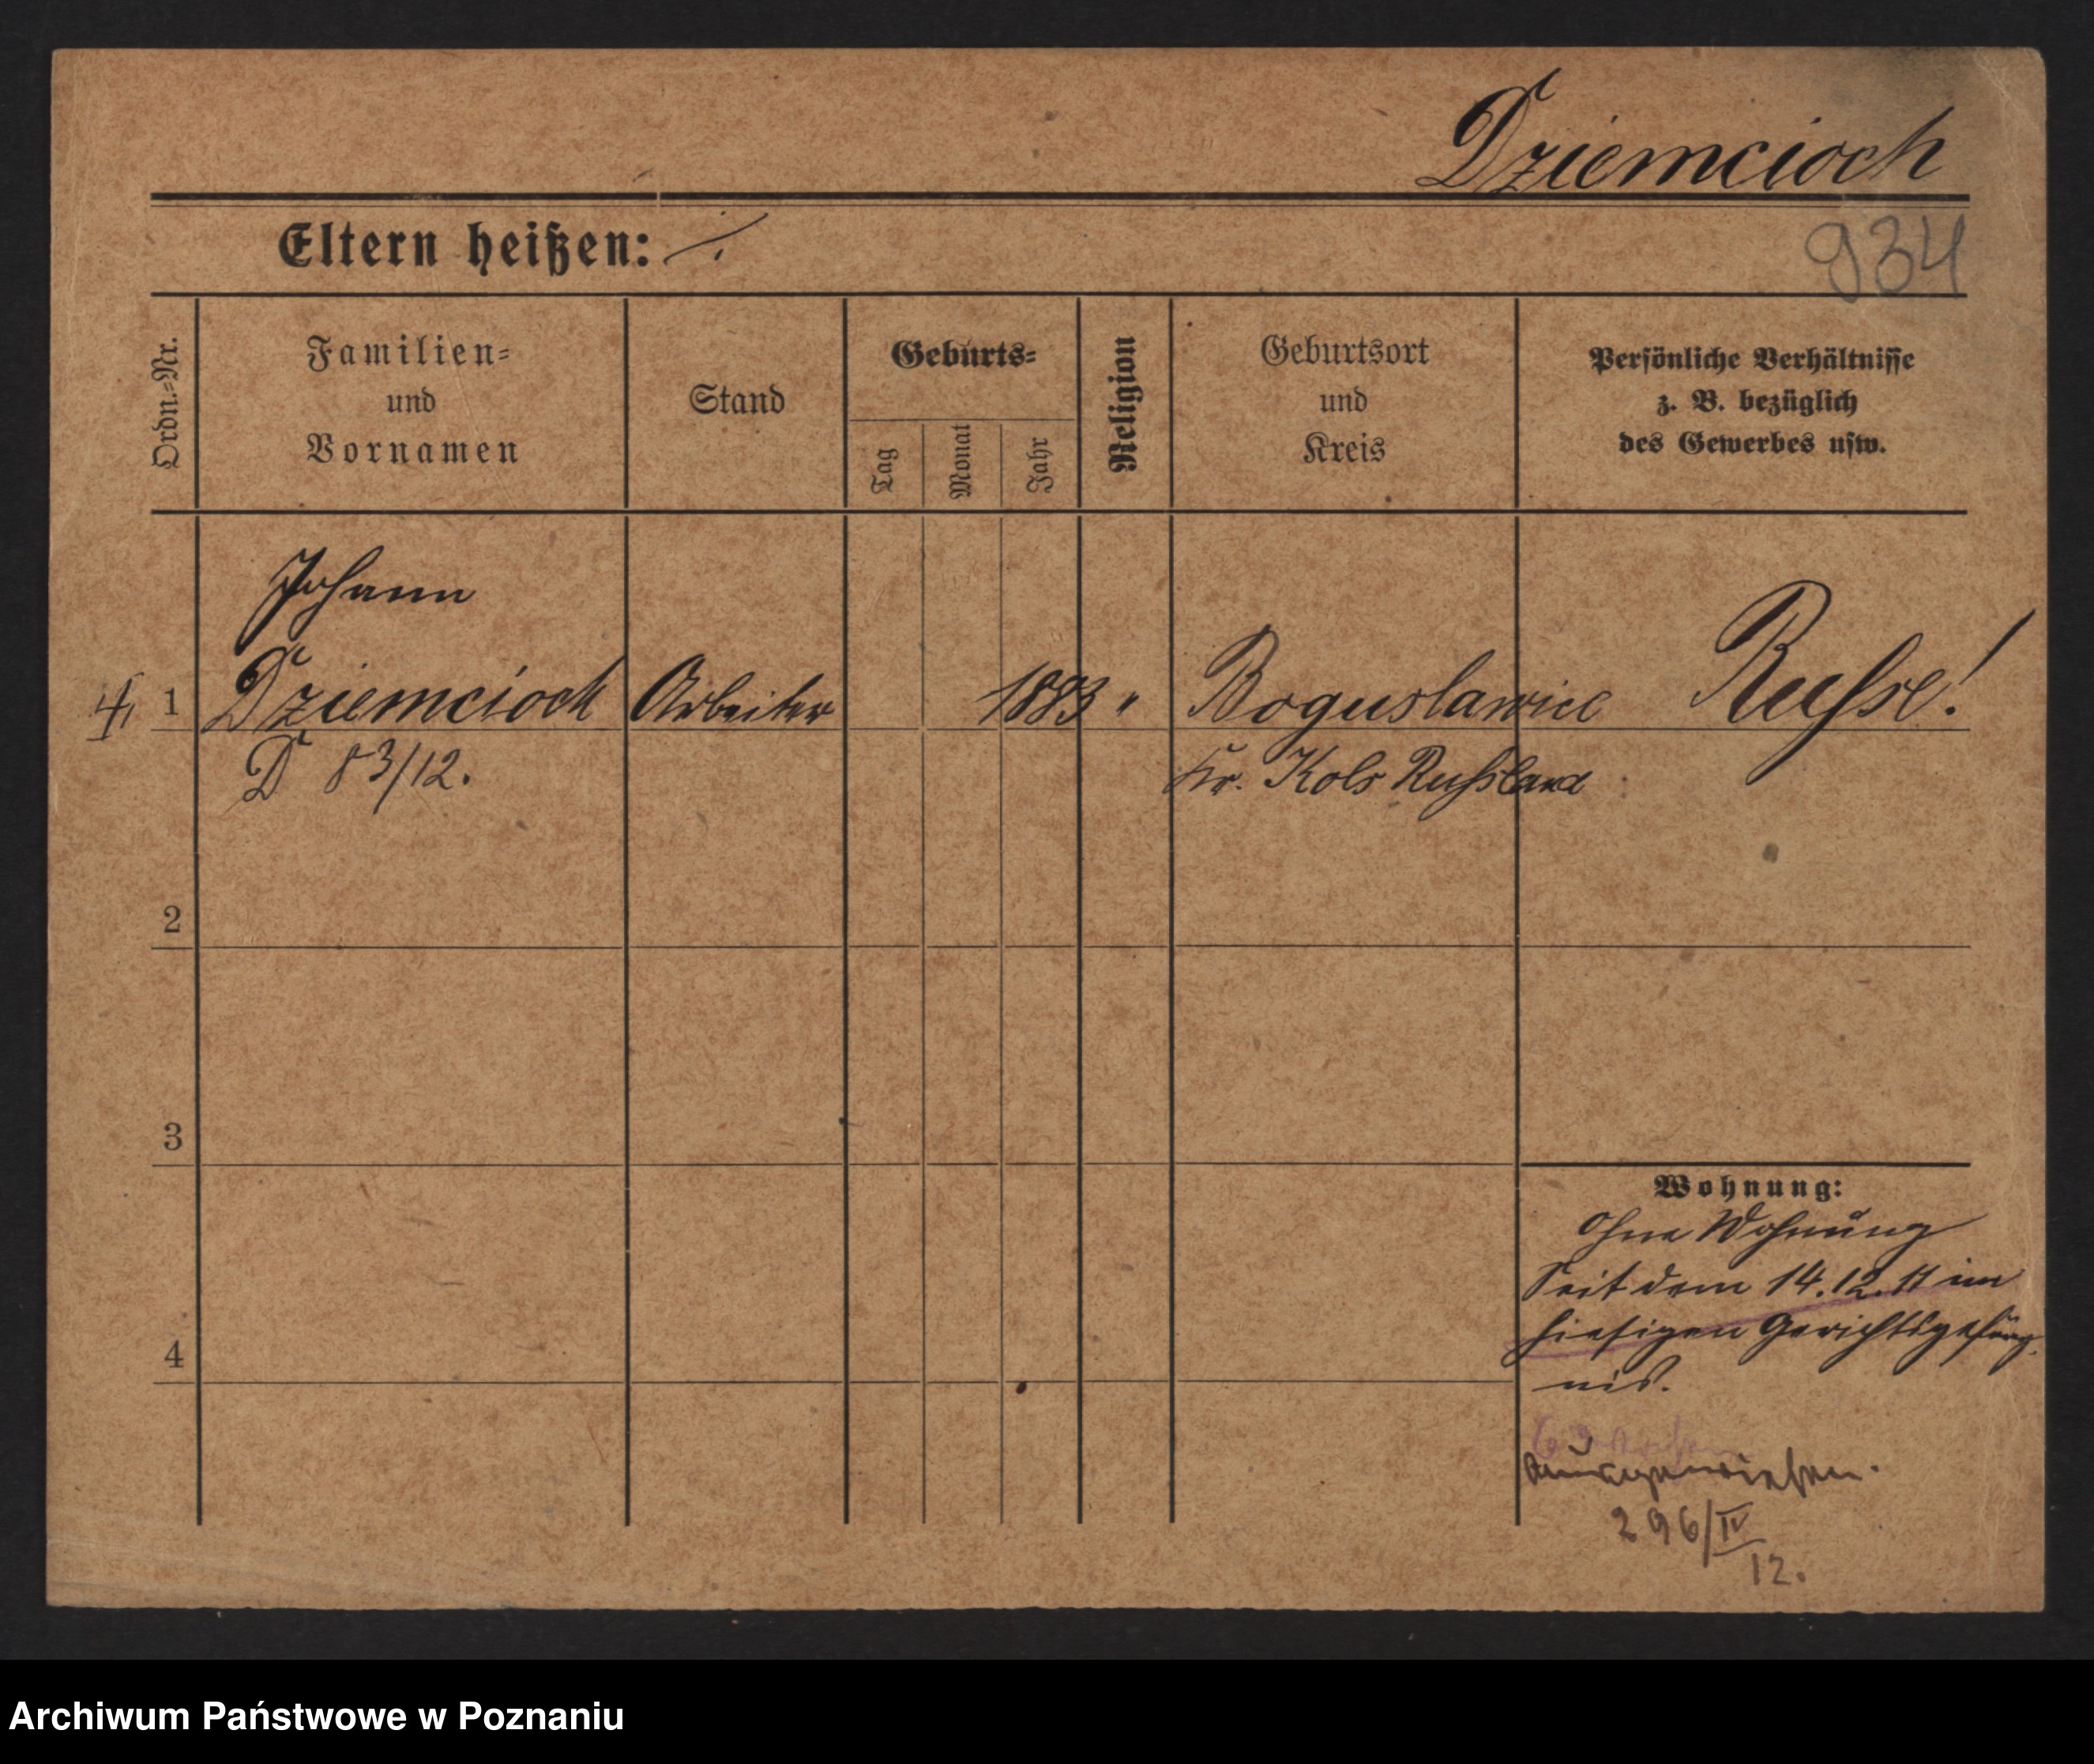 Dziemcioch
Eltern heißen: ./.
934
Ordn.=Nr.
Familien=
und
Vornamen
Stand
Geburts=
Tag
Monat
Jahr
Religion
Geburtsort
und
Kreis
Persönliche Verhältnisse
z. B. bezüglich
des Gewerbes usw.
Johann
1 Dziemcioch Arbeiter 1883 " Boguslawice Russe!
D 83/12. Kr. Kolo Russland
2
3
Wohnung:
Ohne Wohnung
Seit dem 14.12.11 im
hiesigen Gerichtsgefäng-
4
nis.
ausgewiesen.
296/IV
12.
Archiwum Państwowe w Poznaniu